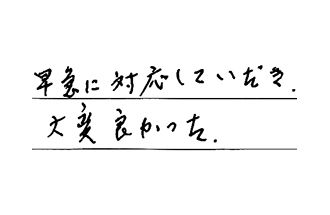 早急に対応していだき.
大変良かった.